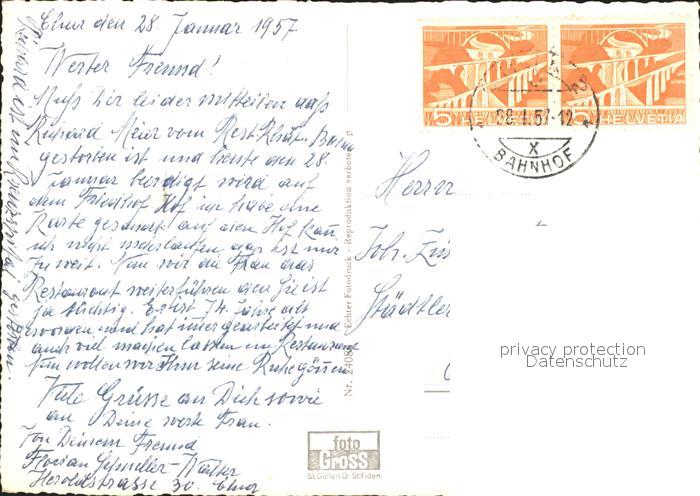 Chur den 28. Januar 1957.
Werter Freund!
Muss Dir leider mitteilen dass
Richard Meier vom Rest. Rhät.
gestorben ist und heute den 28.
Januar beerdigt wird auf
dem Friedhof Hof ich habe eine
Karte gesandt auf den Hof kann
ich nicht das ist mir
zu weit. Nun wir die Frau das
Restaurant weiterführen den Sie ist
ja tüchtig. Er ist 74 Jahre alt
geworden und hat immer gearbeitet und
auch viel machen lassen im Restaurant
Nun wollen wir Ihm seine Ruhe gönnen
Viele Grüsse an Dich sowie
an Deine werte Frau.
Von Deinem Freund
Florian
Heroldstrasse 30. Chur
gestorben.
Nr. 2408
Echter Fotodruck - Reproduktion verboten
foto
GROSS
St.Gallen O St.Fiden
5 HELVETIA
5 HELVETIA
28.I.57-12
X
BAHNHOF
Herrn
Joh.
Städtle
privacy protection
Datenschutz